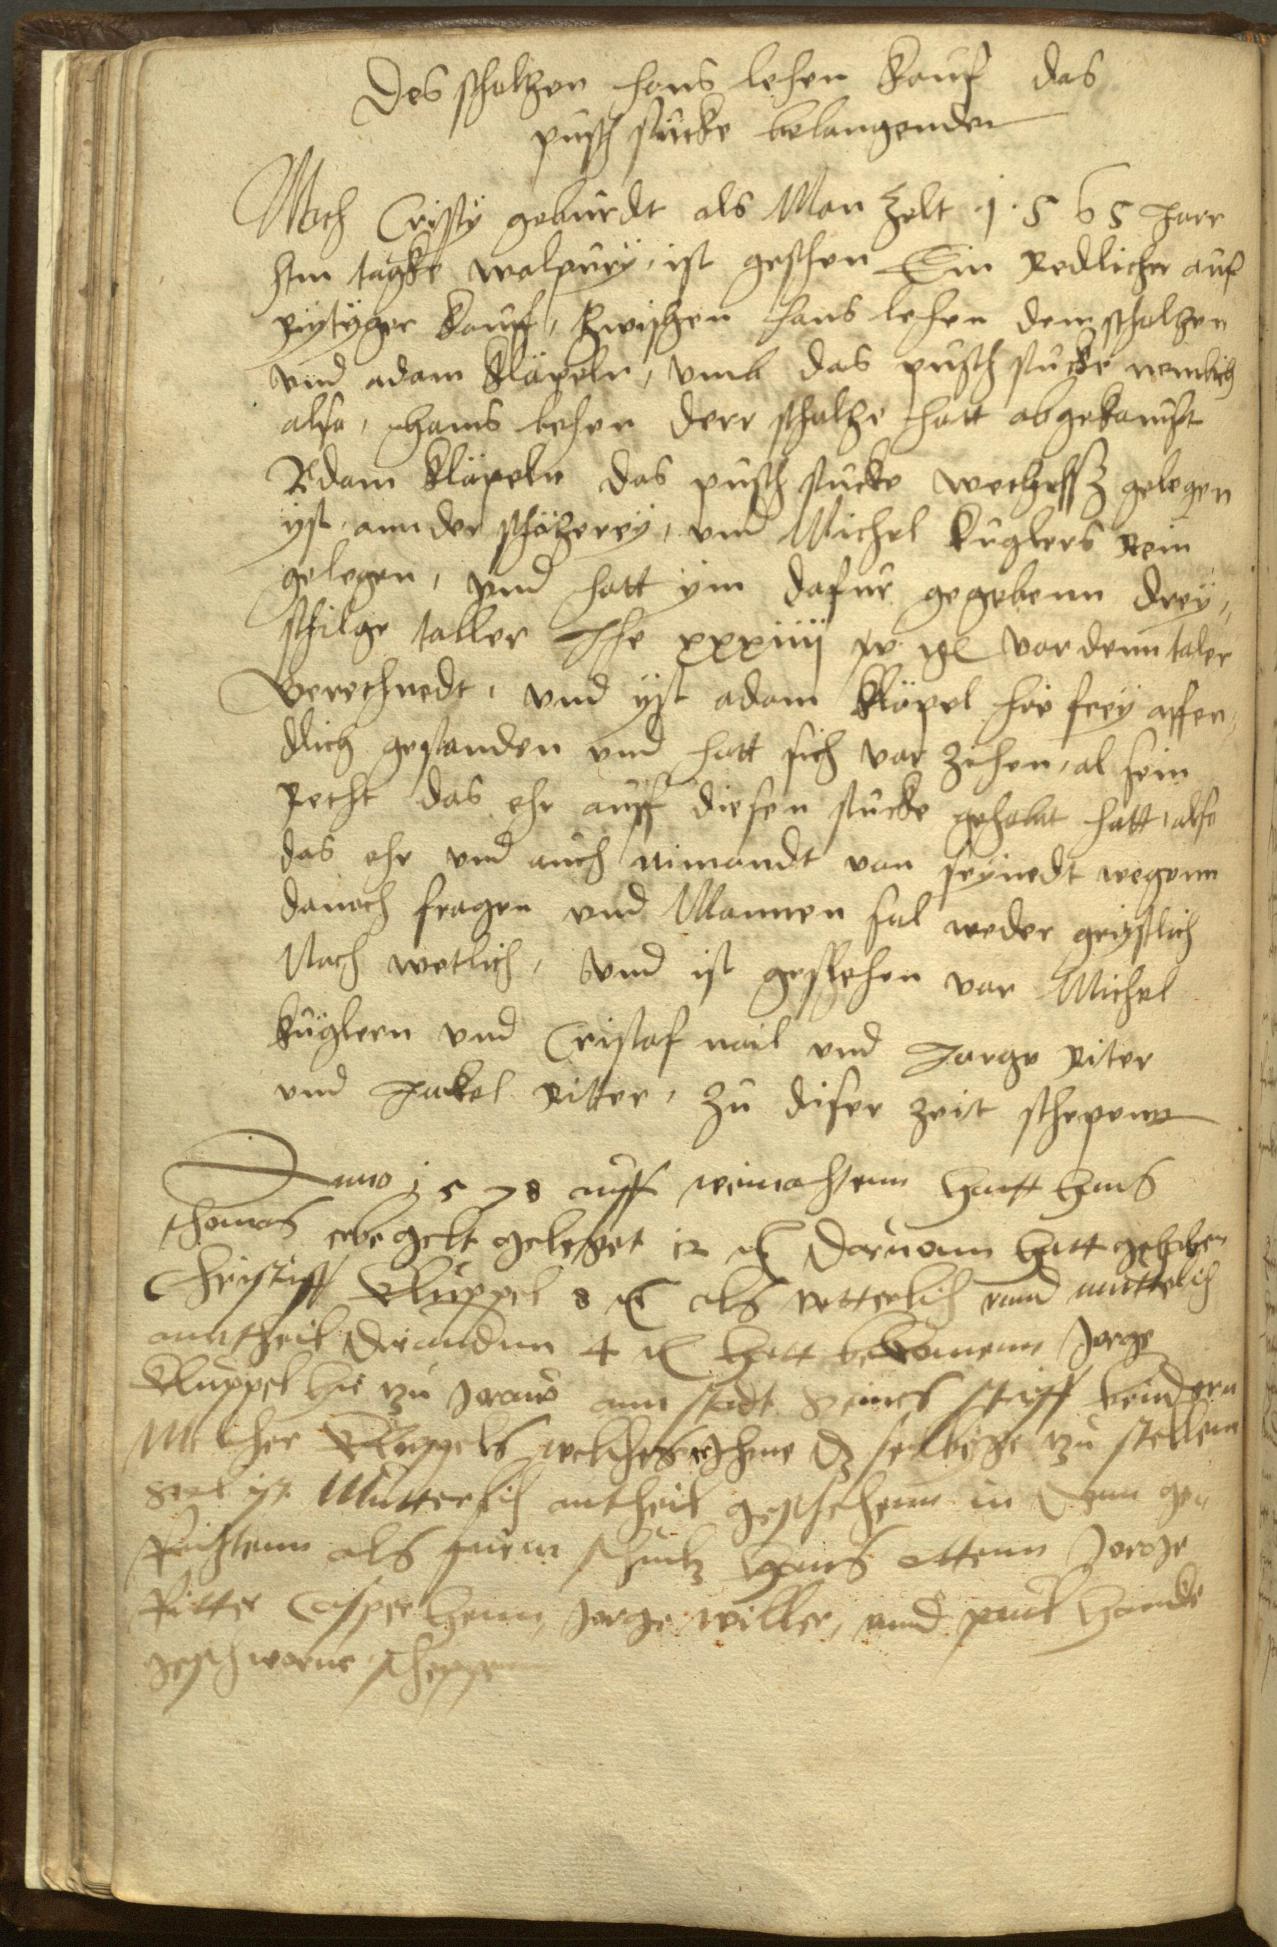 Des scholtzen hans lehen kauf das
pusch stucke belangenden
Nach Cristy geburdt als Man zelt 1565 Jarr
Am tagke walpury, ist geschen Ein Redlicher auf
Kauff, zwischen hans lehen dem scholtzen
vnd adam kläpeln, vmb das pusch stucke nemlich
also, hans lehen derr scholtze hatt abgekauft
Adam kläpeln das pusch stucke gelegen
yst ann der schäzerey, vnd Michel kuglers Rein
gelegen, vnd hatt ym dafur gegebenn drey
schilge taller xxxiiii w. gl vor denn taler
Gerechnedt, vnd yst adam kläpel hie frey offen
dlich gestanden vnd hatt sich vor zihen, al sein
Recht das ehr auff diesen stucke gehabt hatt, also
das ehr vnd auch nimandt von seynedt wegenn
danoch fragen vnd Mannen sal weder geystlich
Nach wetlich, Vnd ist geschehen vor Michel
kuglern vnd Cristof vnd Jorge Riter
vnd Jakel Ritter, zu diser zeit schepenn
Anno 1578 auff weinachtenn hatt hans
thomas erbegelt geleget 12 Daruonn hatt gehoben
Christoff Kluppel 8 als vetterlich vnnd mutterlich
anntheil 4 hatt bekomenn Jorge
Kluppel hie zu ann stadt seines stiff
Melcher Kluppels, welches ehme zu stellenn
Mutterlich antheil geschehenn in denn ge
Richtenn als schultz hans ottenn Jorge
Ritter Casper henn, Jorge willer, vnnd paul
geschworne scheppenn